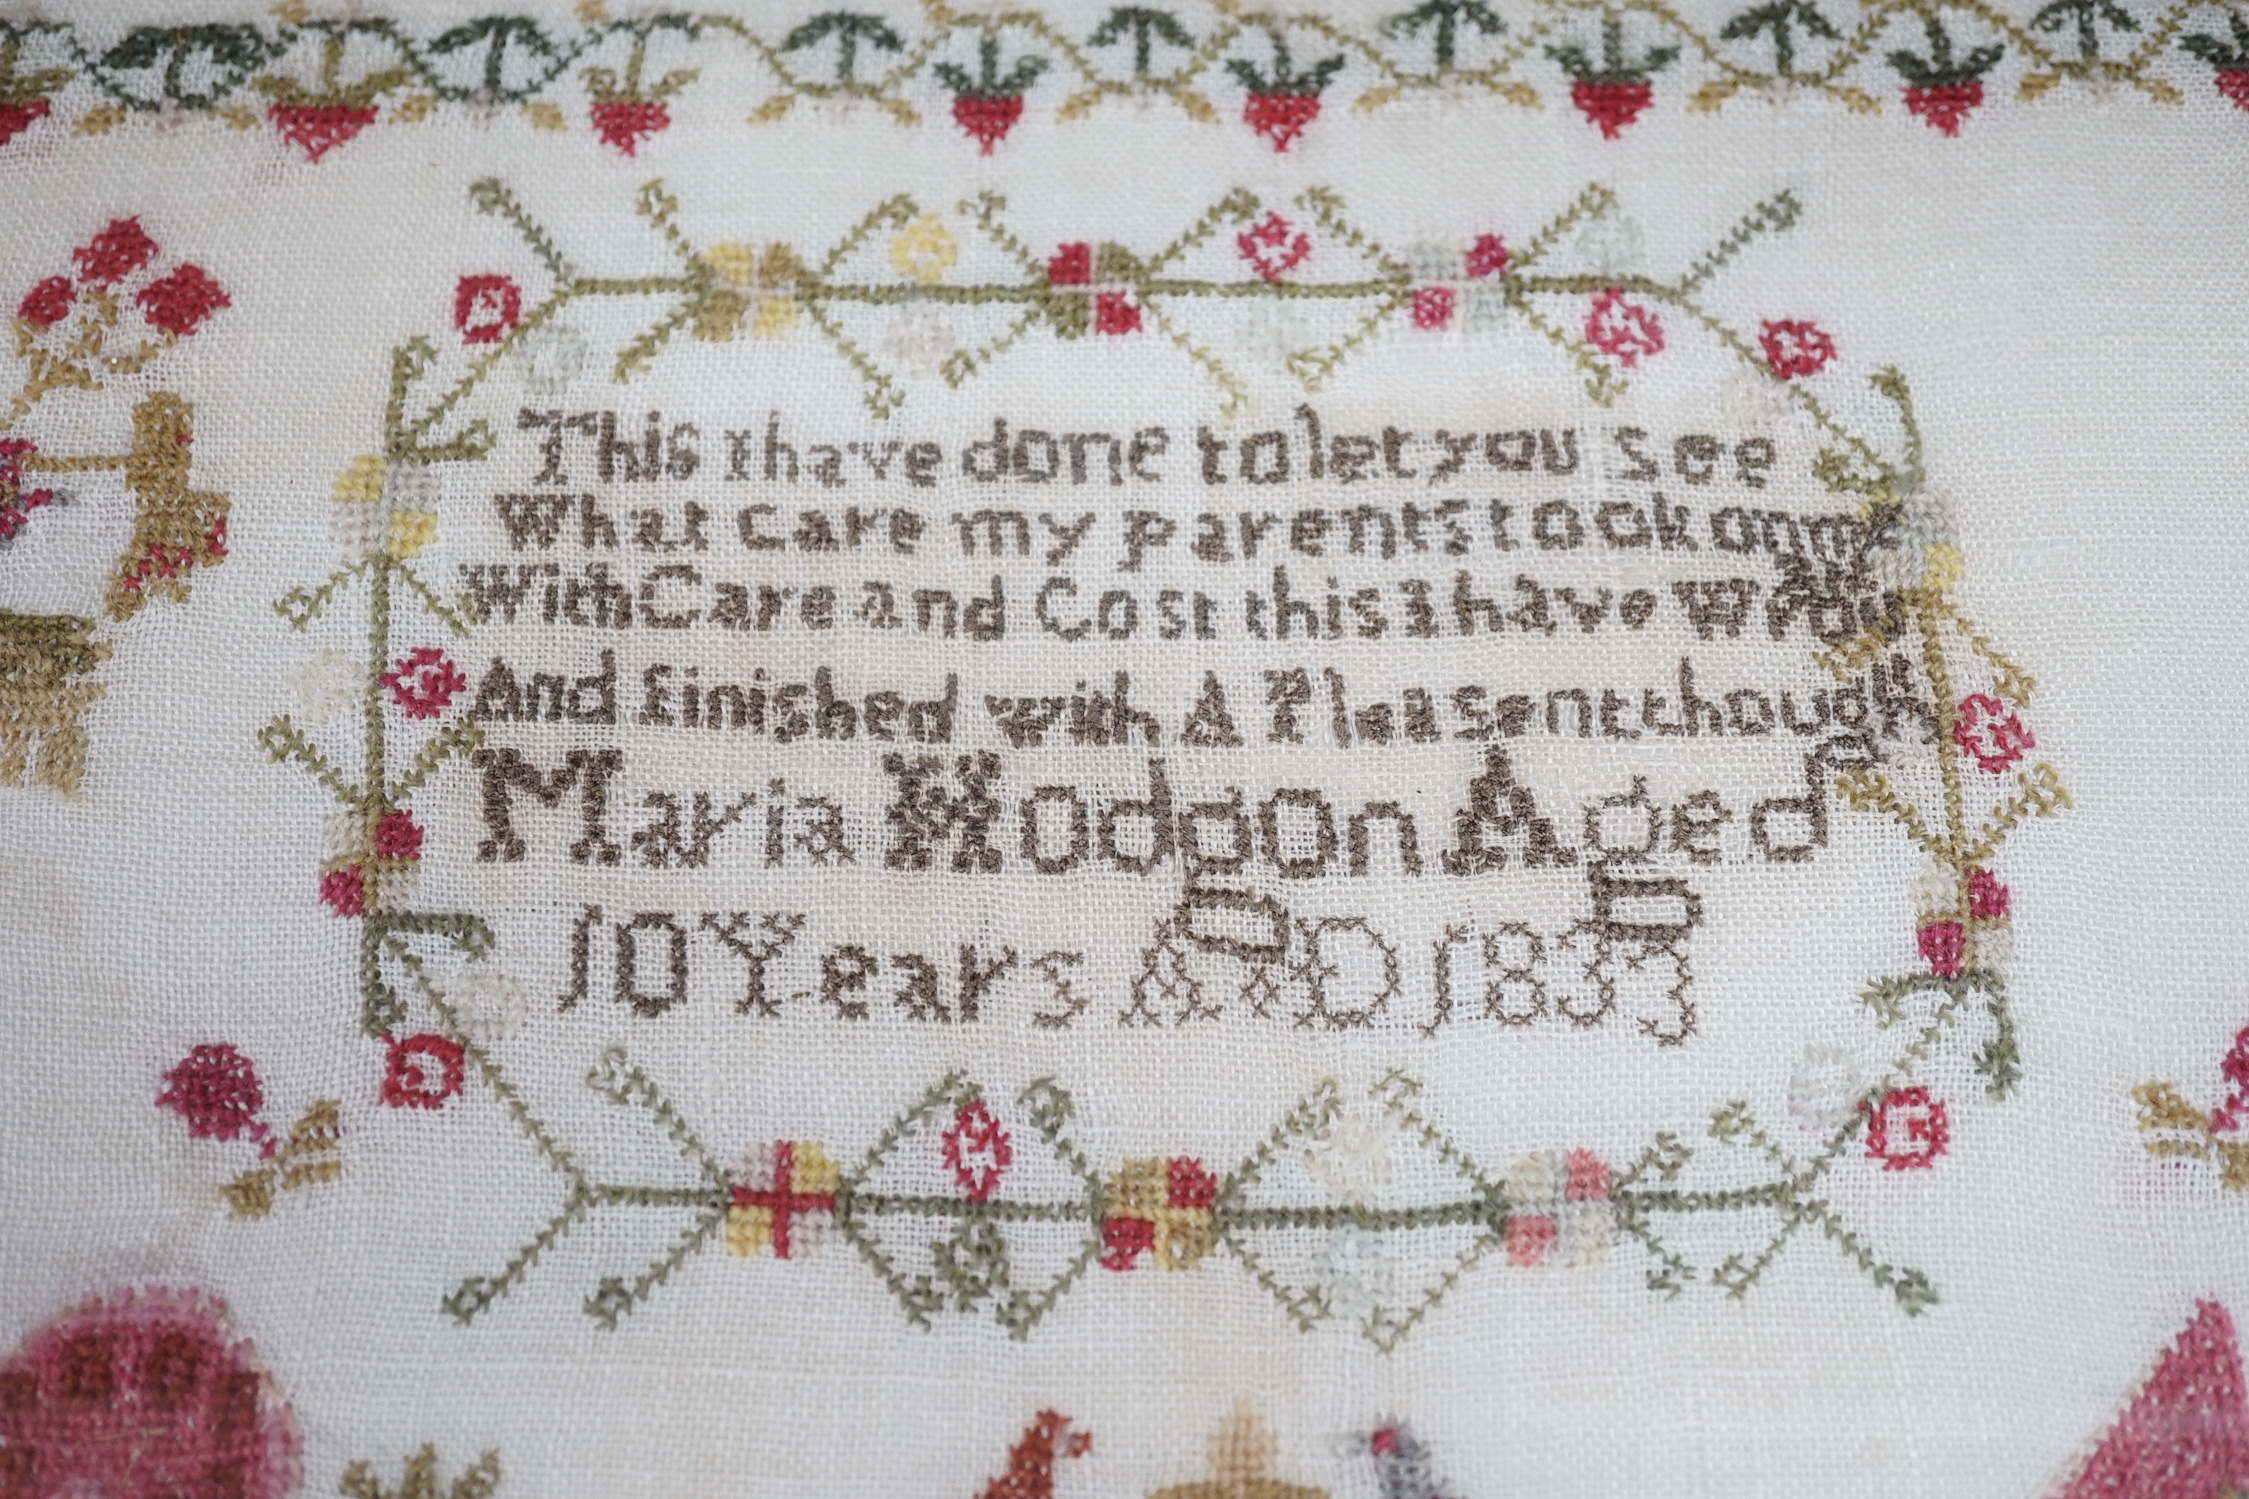 This I have done to let you see
What Care my parents took on me
With Care and Cost this I have Wrou
And finished with A Pleasent though
Maria Hodgon Aged
10 Years A D 1833